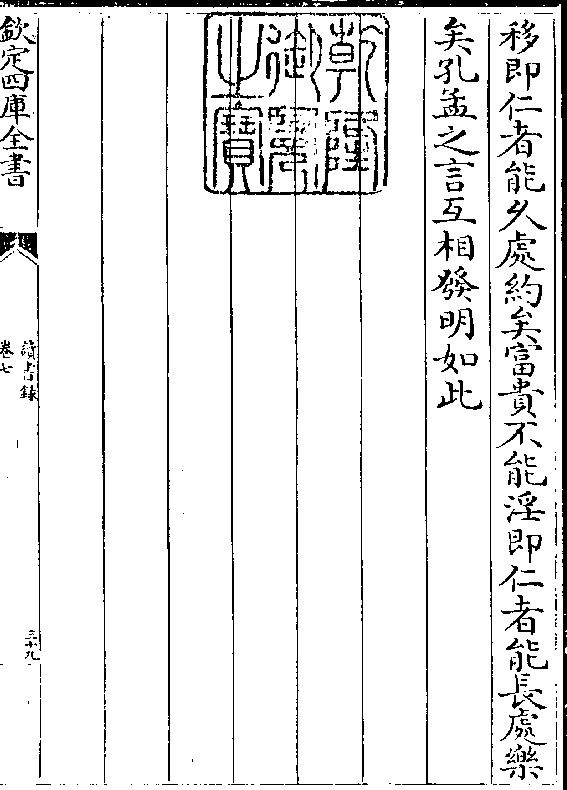 移即仁者能久處約矣富貴不能淫即仁者能長處樂
矣孔孟之言互相發明如此
乾隆
御覽
之寶
欽定四庫全書
讀書錄
卷七
三十九